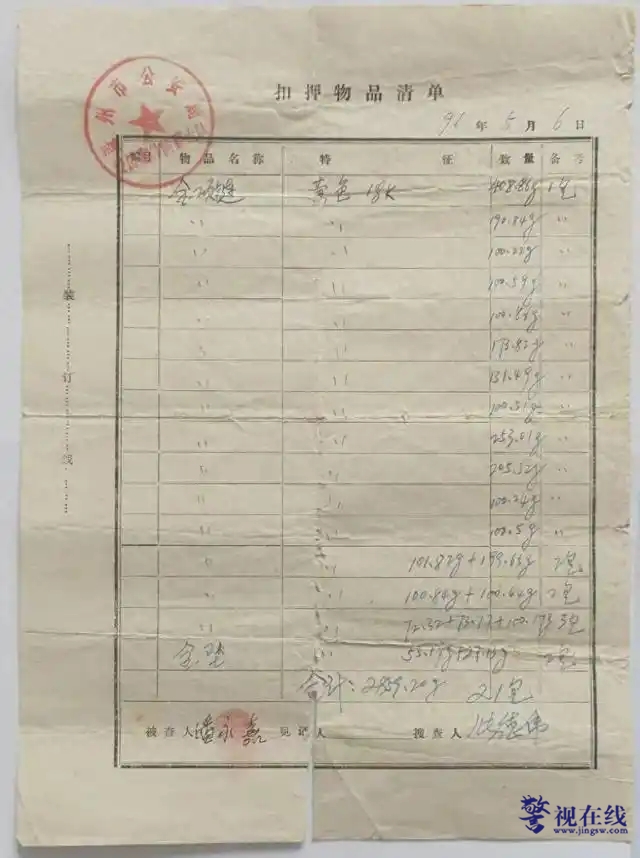 扣押物品清单
91年5月6日
编号 物品名称 特征 数量 备考
金项链 黄色 18K 408.86g 1包
〃 〃 190.84g 〃
〃 〃 100.22g 〃
〃 〃 100.59g 〃
〃 〃 100.86g 〃
〃 〃 173.82g 〃
〃 〃 131.49g 〃
〃 〃 100.51g 〃
〃 〃 253.01g 〃
〃 〃 205.52g 〃
〃 〃 100.24g 〃
〃 〃 100.5g 〃
〃 〃 101.82g+199.63g 2包
〃 〃 100.84g+100.64g 2包
〃 〃 3包
金 〃 2包
合计:2859.20g 21包
被查人 潘永嘉 见证人 搜查人
装订线
州市公安局
警视在线
www.jingsw.com